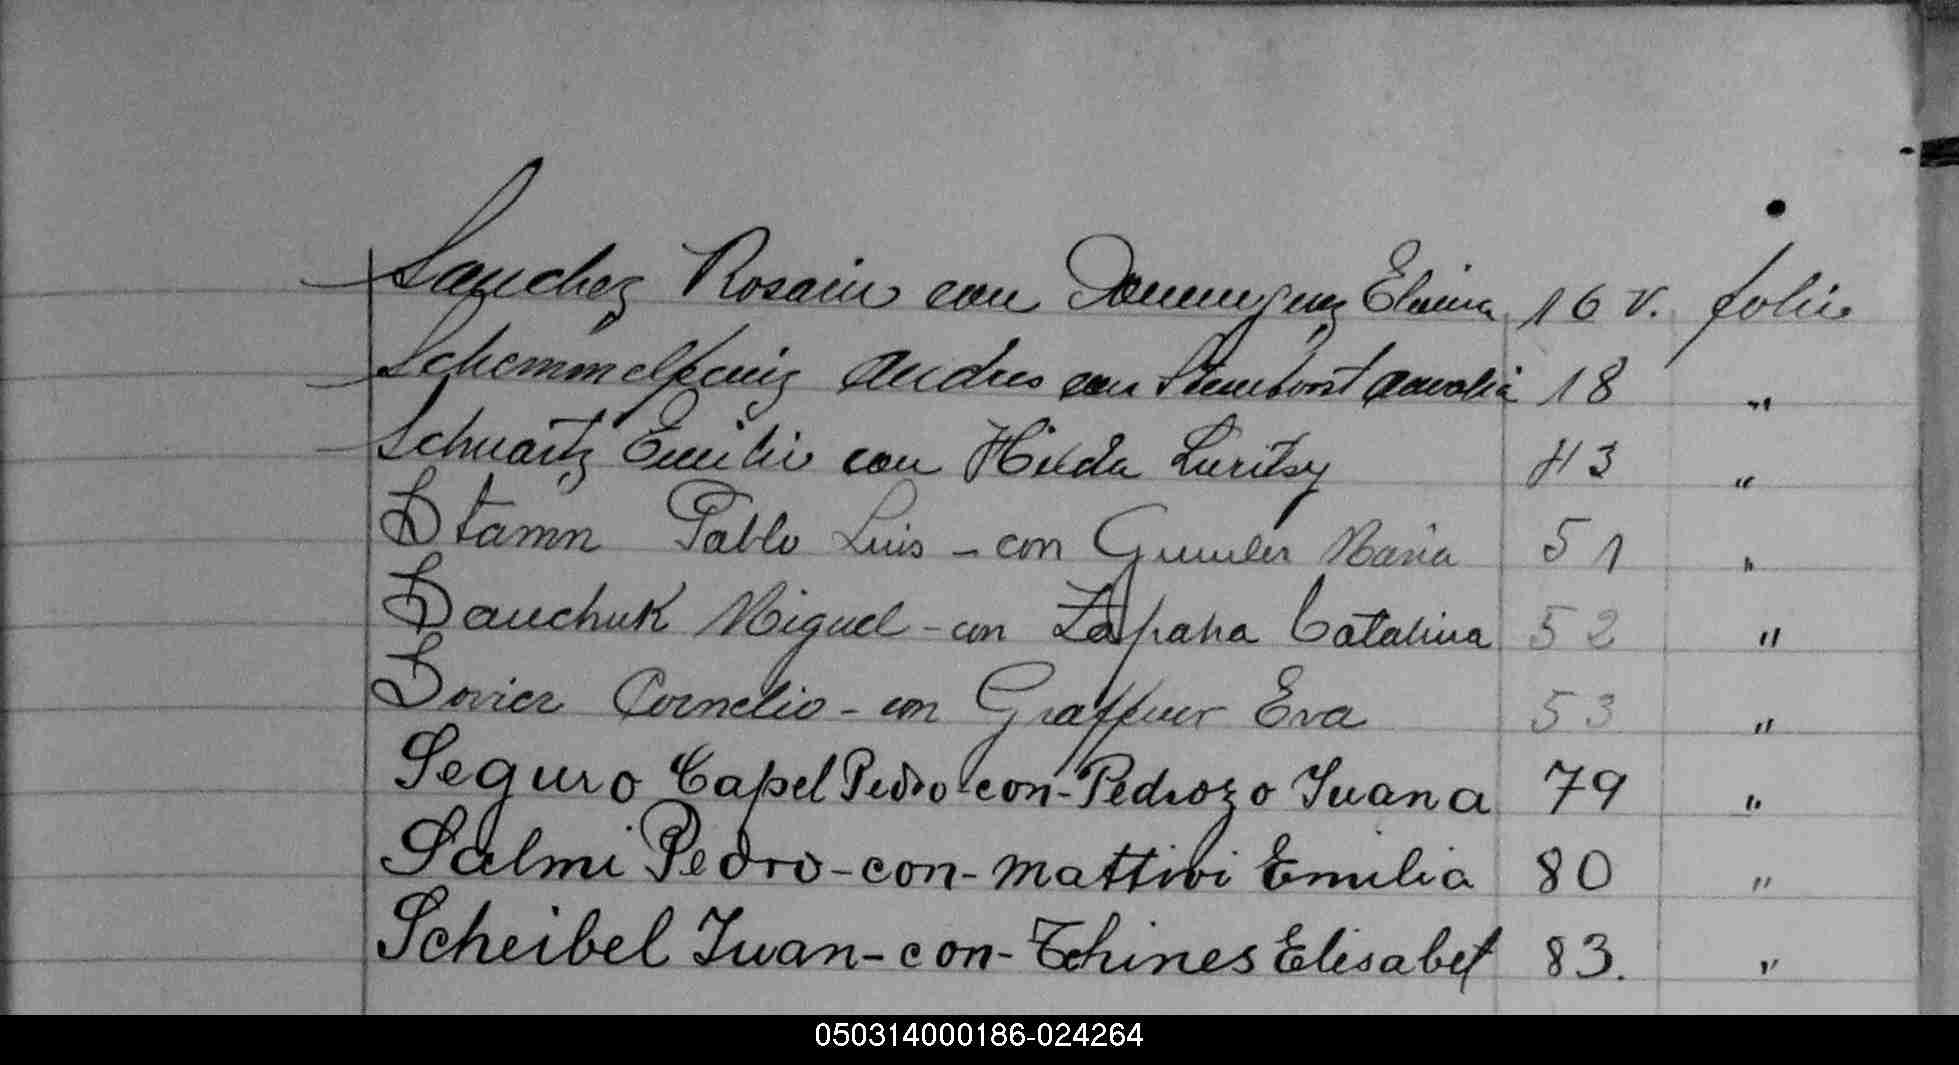 Sanchez Rosario con Dominguez Elvira 16 v. folio
Schemmelfenig Andres con Amalia 18 „
Schwartz Emilio con Hilda 43 „
Stamn Pablo Luis - con Maria 51 „
Sauchuk Miguel - con Catalina 52 "
Sovier Cornelio - con Eva 53 "
Seguro Capel Pedro - con - Pedrozo Juana 79 "
Salmi Pedro - con - Mattivi Emilia 80 "
Scheibel Juan - con - Elisabet 83. "
050314000186-024264